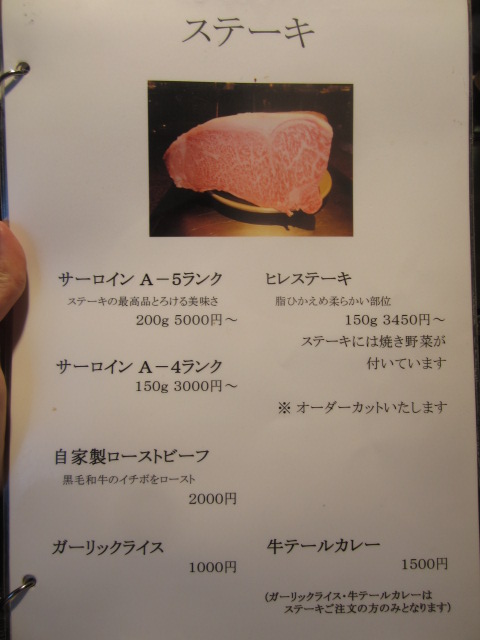 ステーキ
サーロイン A－5ランク
ステーキの最高品とろける美味さ
200g 5000円～
サーロイン A－4ランク
150g 3000円～
自家製ローストビーフ
黒毛和牛のイチボをロースト
2000円
ガーリックライス
1000円
ヒレステーキ
脂ひかえめ柔らかい部位
150g 3450円～
ステーキには焼き野菜が
付いています
※ オーダーカットいたします
牛テールカレー
1500円
(ガーリックライス・牛テールカレーは
ステーキご注文の方のみとなります)